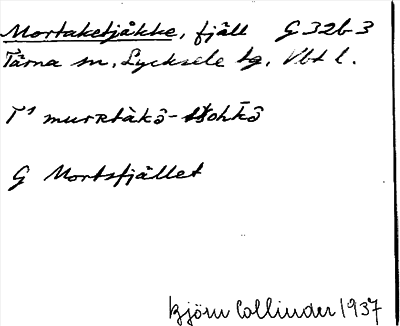 Mortaketjåkke, fjäll G 32b3
Tärna sn, Lycksele lg. Vbt l.
T¹ murRtàkô-
G Mortsfjället
Björn Collinder 1937